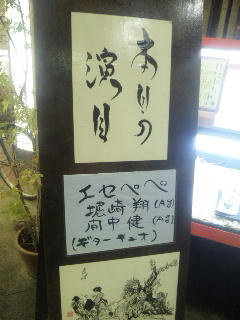 本日の
演目
エセペペ
堀崎 翔 (Ag)
間中 健 (Ag)
(ギターデュオ)